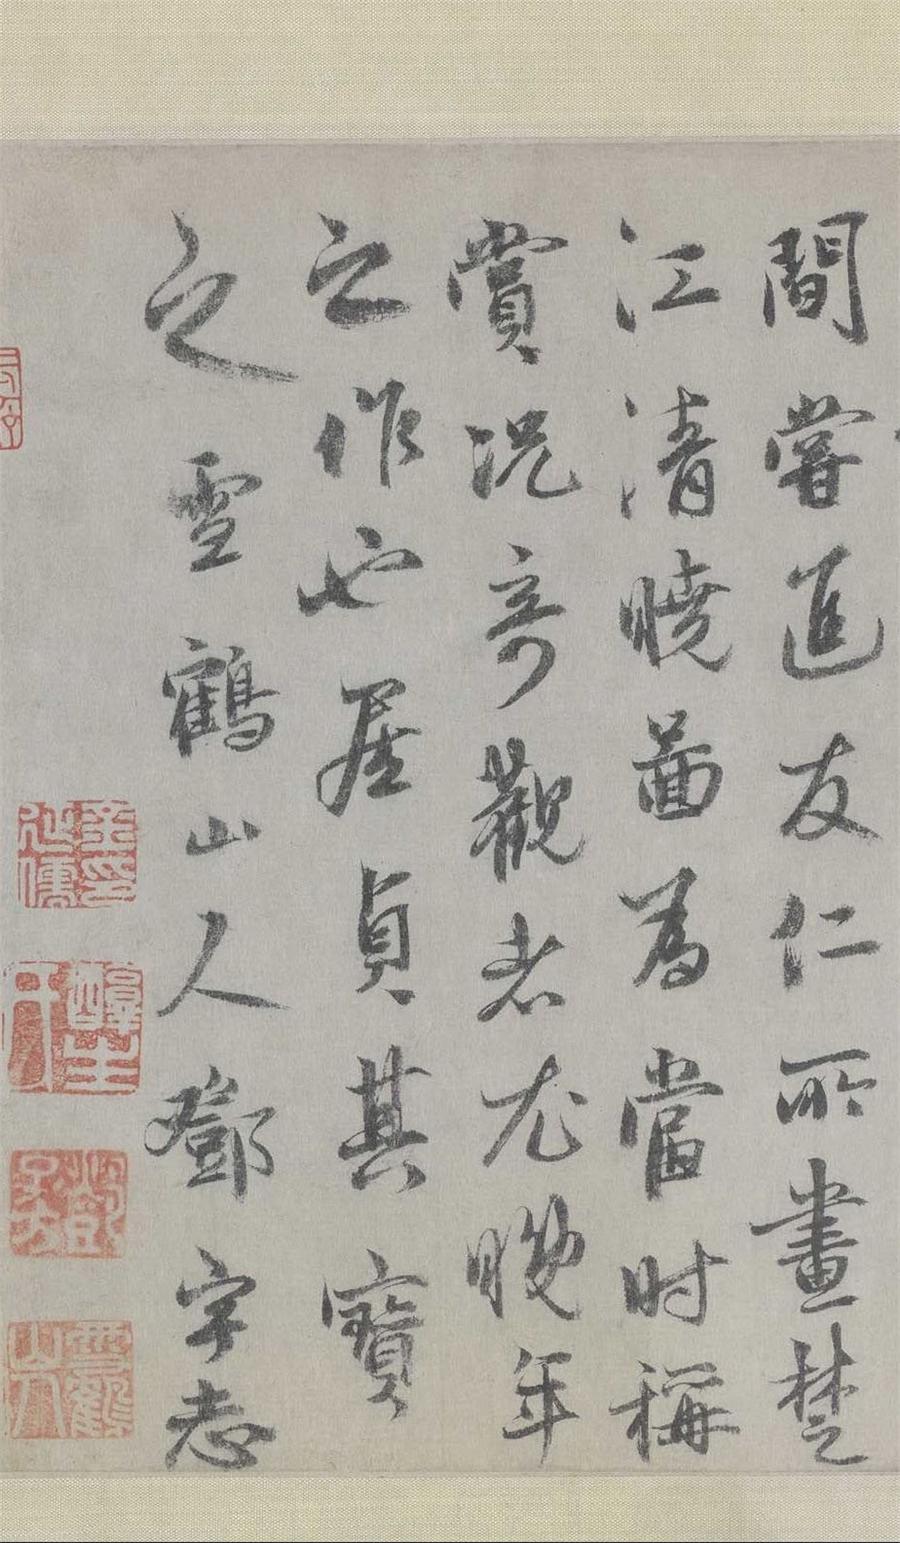 間嘗進友仁所畫楚
江清曉圖為當时稱
賞況奇觀者尤晚年
之作也居貞其寶
之雲鶴山人鄧字志